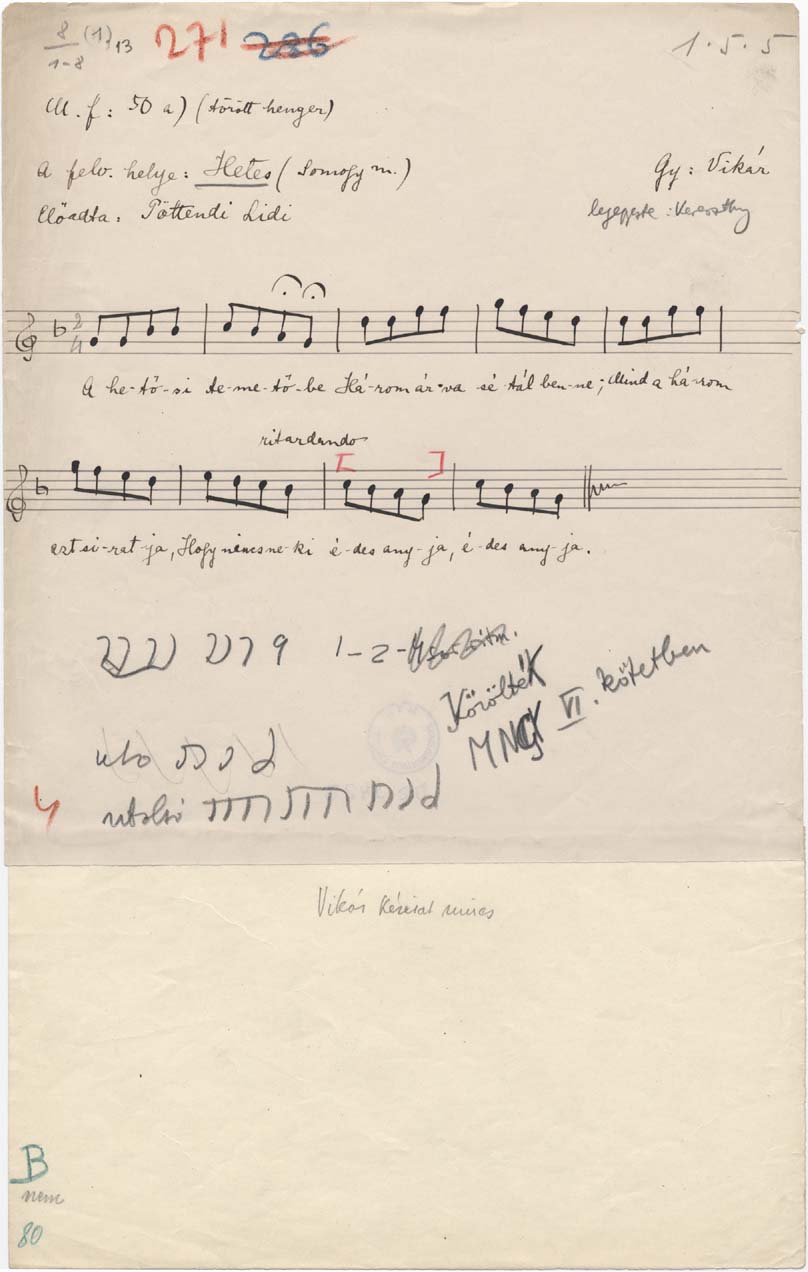 8/1-8 (1) 13 271 286 1.5.5
M. f: 50 a) (törött henger)
A felv. helye: Hetes (Somogy m.) Gy: Vikár
Előadta: Pöttendi Lidi lejegyezte: Kereszthy
2/4
A he-tő-si te-me-tő-be Há-rom ár-va sé-tál ben-ne; Mind a há-rom
ritardando
azt si-rat-ja, Hogy nincs ne-ki é-des any-ja, é-des any-ja.
1-2-
Közölték
MNGY VI. kötetben
utolsó
Vikár kézirat nincs
B
nem
80